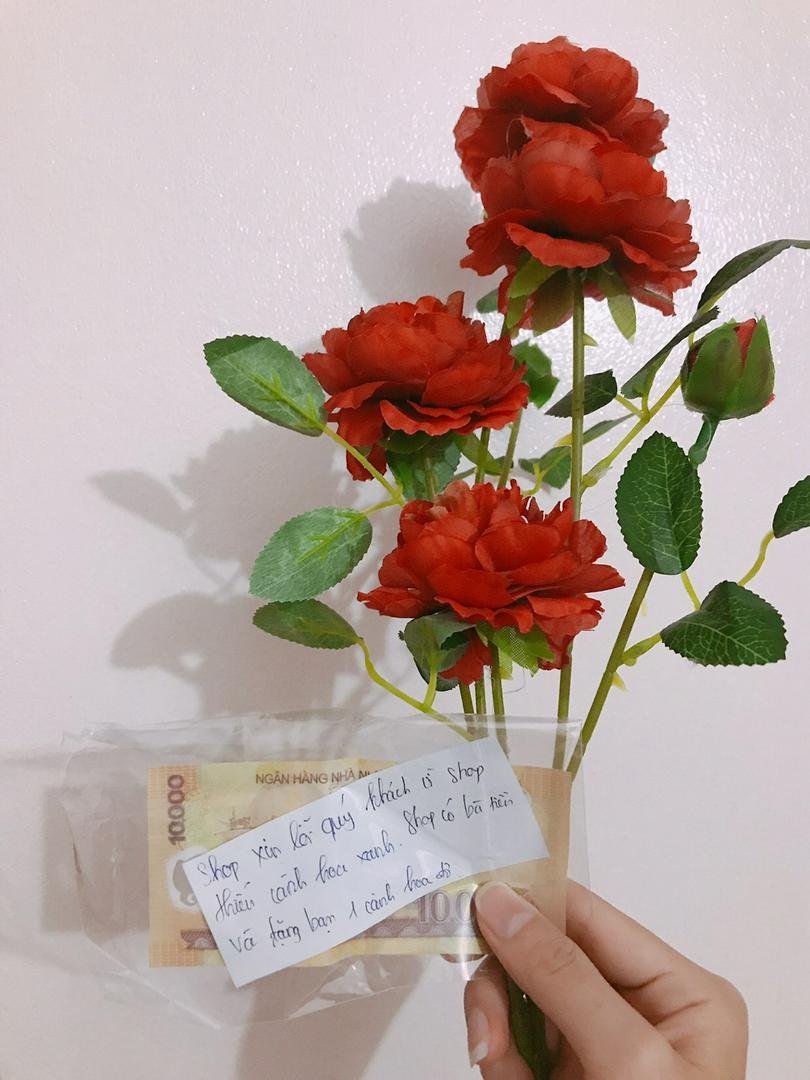 10.000
NGÂN HÀNG NHÀ
Shop xin lỗi quý khách vì shop
thiếu cành hoa xanh. Shop có bù tiền
và tặng bạn 1 cành hoa đỏ.
10.0